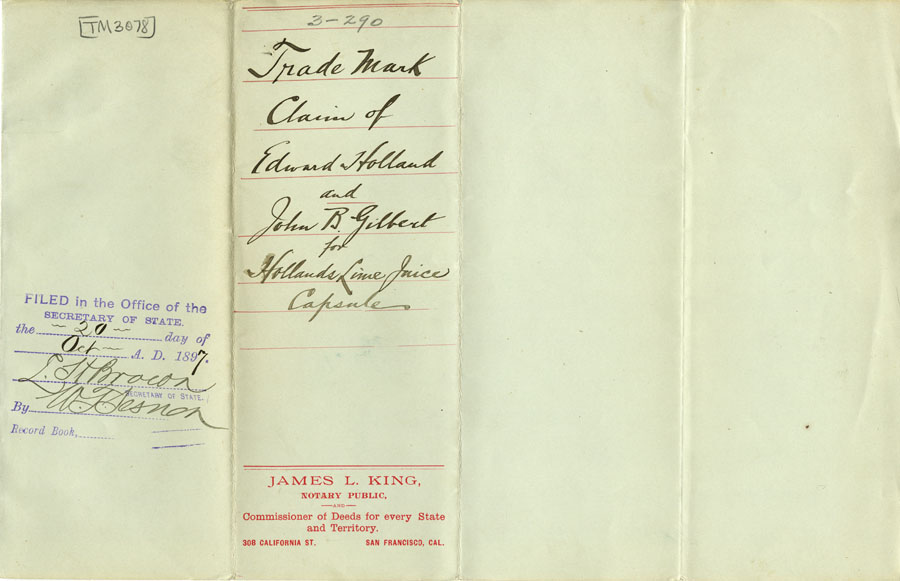 TM3078
FILED in the Office of the
SECRETARY OF STATE.
the 20 day of
Oct A. D. 1897.
L. H Brown
SECRETARY OF STATE.
By
Record Book,
3-290
Trade Mark
Claim of
Edward Holland
and
John B. Gilbert
for
Hollands Lime Juice
Capsule
JAMES L. KING,
NOTARY PUBLIC,
AND
Commissioner of Deeds for every State
and Territory.
308 CALIFORNIA ST. SAN FRANCISCO, CAL.